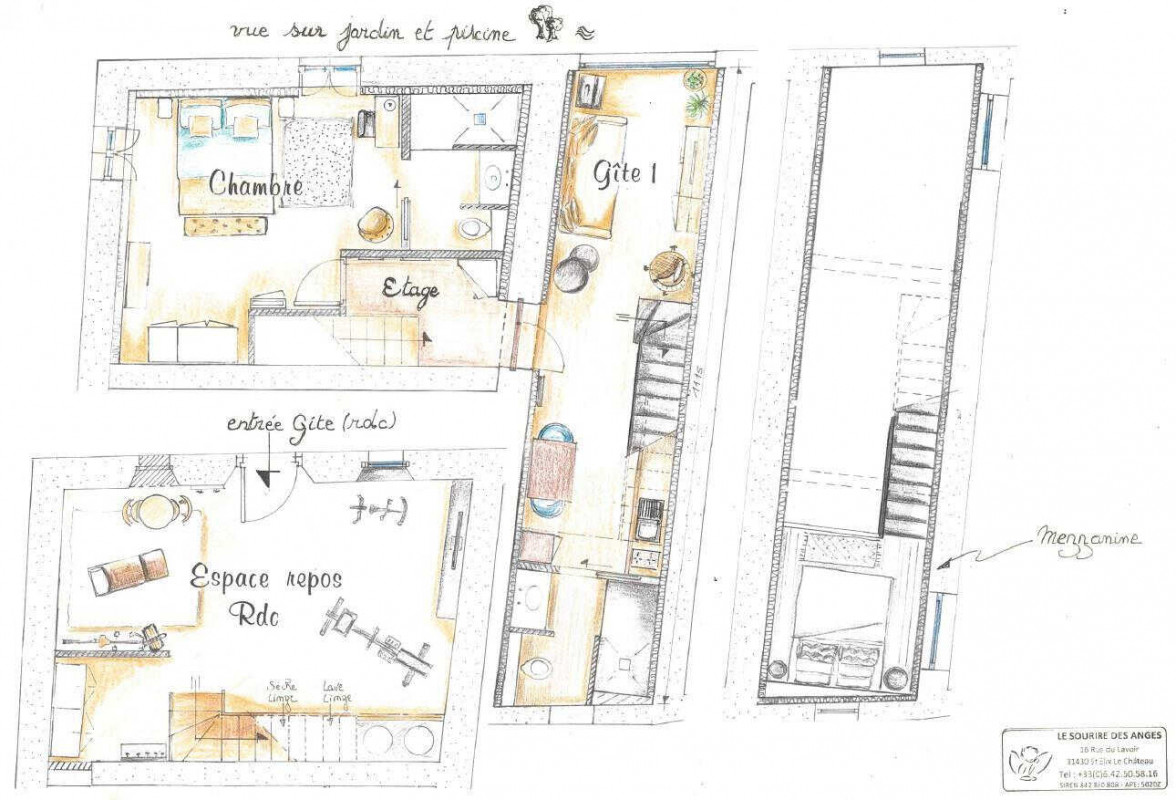 vue sur jardin et piscine
Chambre
Gîte 1
Etage
1115
entrée Gîte (rdc)
Espace repos
Rdc
Sèche
Linge
Lave
Linge
Mezzanine
LE SOURIRE DES ANGES
16 Rue du Lavoir
31430 St Elix Le Château
Tel : +33(0)6.42.50.58.16